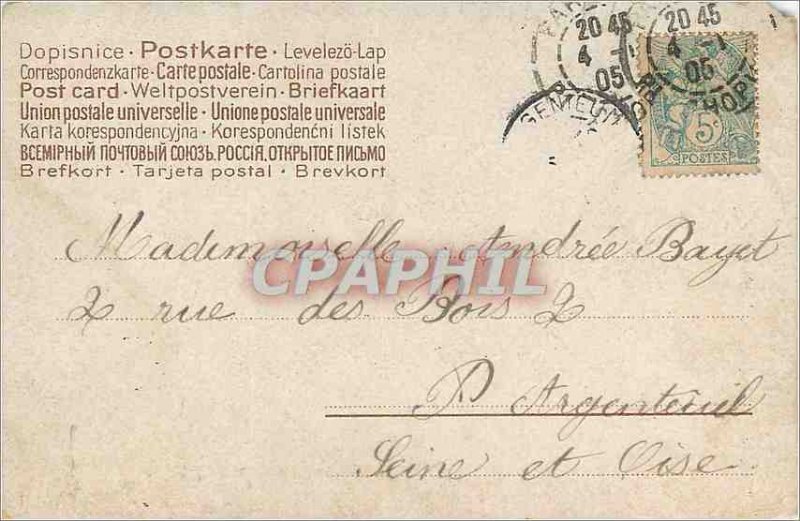 Dopisnice · Postkarte · Levelezö-Lap
Correspondenzkarte · Carte postale · Cartolina postale
Post card · Weltpostverein · Briefkaart
Union postale universelle · Unione postale universale
Karta korespondencyjna · Korespondenční listek
ВСЕМІРНЫЙ ПОЧТОВЫЙ СОЮЗЪ. РОССІЯ. ОТКРЫТОЕ ПИСЬМО
Brefkort · Tarjeta postal · Brevkort
20 45
4 - 1
05
20 45
4 - 1
05
GENTEUIL
5c
POSTES
Madimoiselle Andrée Bayet
CPAPHIL
2 rue des Bois 2
Argenteuil
Seine et Oise